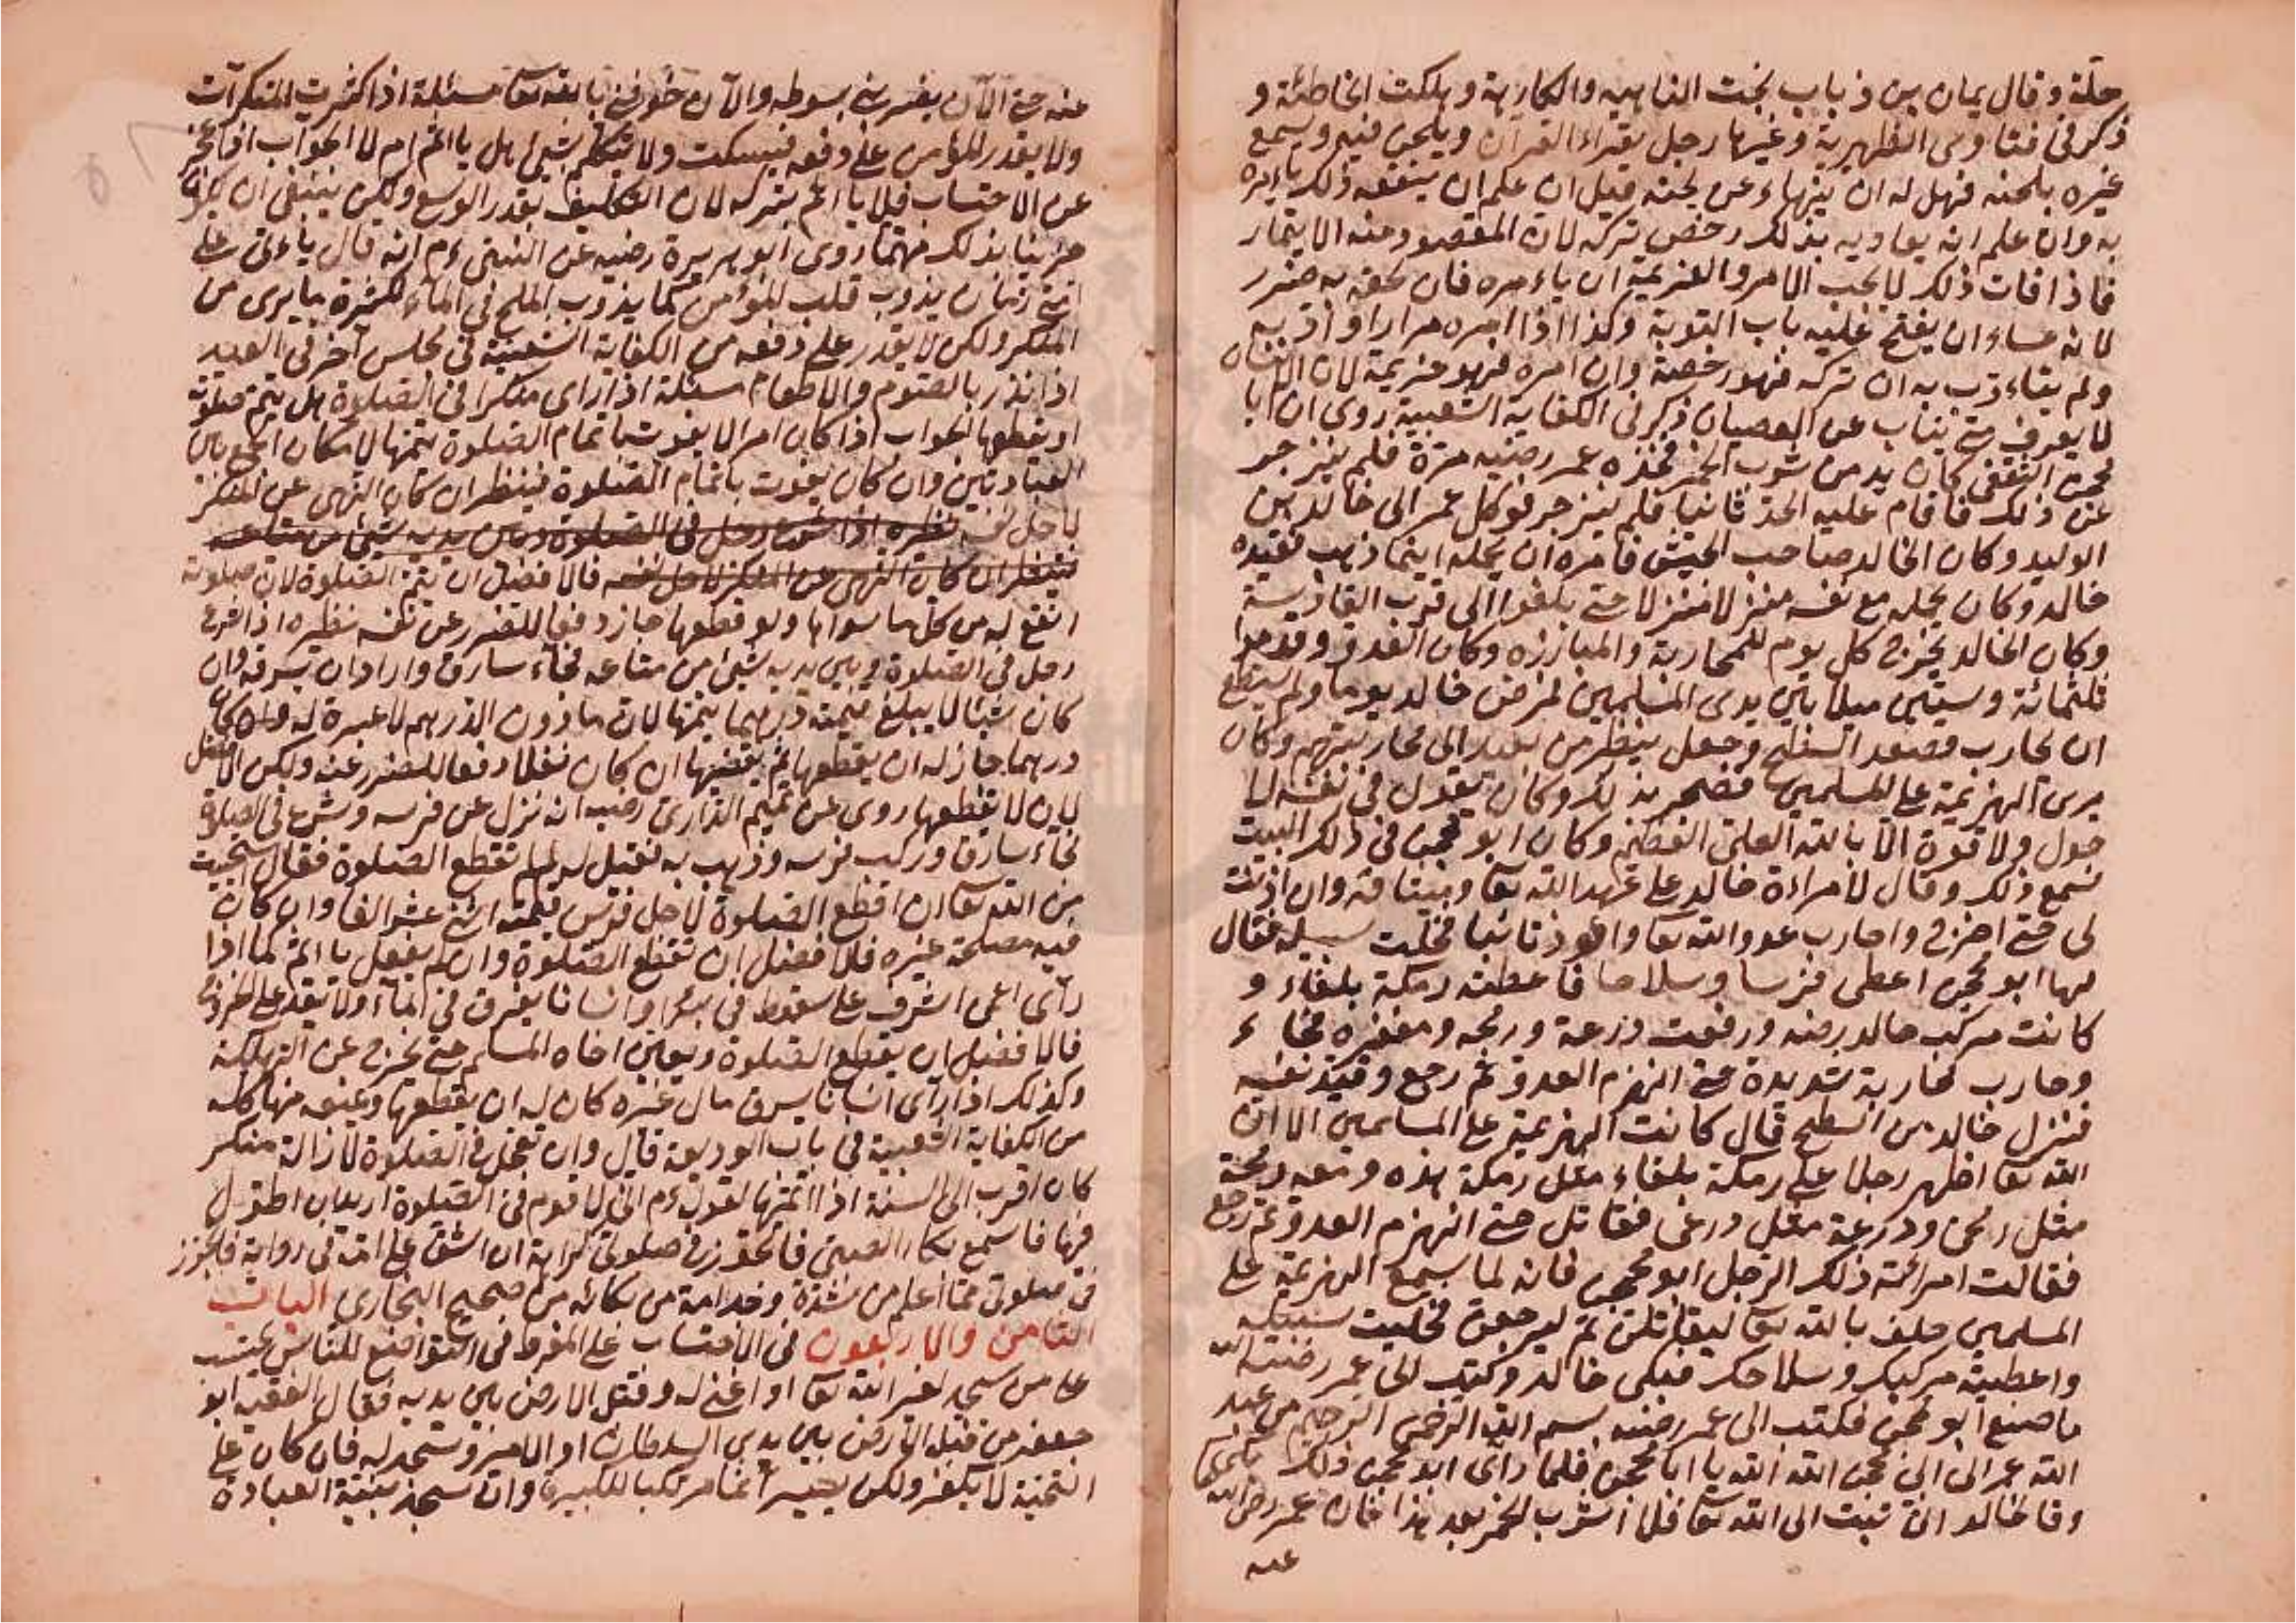 حلة وقال يمان بن ذباب نجت الناهية والكارهة وهلكت الخاطئة و
ذكر في فتاوى الظهيرية وغيرها رجل يقراء القرآن ويلحن فيه ويسمع
غيره بلحنه فهل له ان ينهاء عن لحنه قيل ان علم ان ينفعه ذلك ياءمره
به وان علم انه يعاديه بذلك رخص تركه لان المقصود منه الايتمار
فاذا فات ذلك لا يجب الامر والعزيمة ان ياءمره فان لحقه به ضرر
لانه عساء ان يفتح عليه باب التوبة وكذا اذا امره مرارا واذ به
ولم يتاءدب به ان تركه فهو رخصة وان امره فهو عزيمة لان الانسان
لا يعرف متى يتاب عن العصيان ذكر في الكفاية الشعبية روى ان ابا
محجن الثقفي كان يدمن شرب الخمر فحده عمر رضيه مرة فلم ينزجر
عن ذلك فاقام عليه الحد ثانيا فلم ينزجر فوكل عمر الى خالد بن
الوليد وكان الخالد صاحب الجيش فامره ان يحمله اينما ذهب فقيده
خالد وكان يحمله مع نفسه منزلا منزلا حتى بلغوا الى قرب القادسية
وكان الخالد يخرج كل يوم للمحاربة والمبارزه وكان العدو وقدموا
ثلثمائة وستين ميلا بين يدى المسلمين لمرض خالد يوما ولم يستطع
ان يحارب فصعد السطح وجعل ينظر من بعيد الى محاربتهم وكان
يرى الهزيمة على المسلمين فضجر بذلك وكان يقول في نفسه لا
حول ولا قوة الا بالله العلى العظيم وكان ابو محجن في ذلك البيت
يسمع ذلك وقال لامراءة خالد على عهد الله تعا وميثاقه وان اذنت
لى حتى اخرج واحارب عدو الله تعا واعوذ تائبا فخلت سبيله فقال
لها ابو محجن اعطى فرسا وسلاحا فاعطته رمكة بلقاء و
كانت مركب خالد رضه ورفعت درعه ورمحه ومغفره فجاء
وحارب محاربة شديدة حتى انهزم العدو ثم رجع وقيد نفسه
فنزل خالد من السطح قال كانت الهزيمة على المسلمين الا ان
الله تعا اظهر رجلا على رمكة بلقاء مثل رمكة هذه ومعه رمحه
مثل رمحى ودرعه مثل درعى فقاتل حتى انهزم العدو ثم رجع
فقالت امرأته ذلك الرجل ابو محجن فانه لما سمع الهزيمة على
المسلمين حلف بالله تعا ليقاتلن ثم ليرجعن فخليت سبيله
واعطيته مركبك وسلاحك فبكى خالد وكتب الى عمر رضيه الله
ما صنع ابو محجن فكتب الى عمر رضيه بسم الله الرحمن الرحيم من عبد
الله عمر الى ابى محجن الله الله يا ابا محجن فلما رأى ابو محجن ذلك
وقا خالد انى تبت الى الله تعا فلا اشرب الخمر بعد هذا فان عمر رضى الله
عنه
منه حتى الآن يضربنى بسوطه والآن خوفنى بالله تعا مسئلة اذا كثرت المنكرات
ولا يقدر المؤمن على دفعه فيسكت ولا يتكلم بشئ هل ياءثم ام لا الجواب اذا عجز
عن الاحتساب فلا ياءثم بتركه لان التكليف بقدر الوسع ولكن ينبغى ان يكون
حزينا بذلك مهتما روى ابو هريرة رضيه عن النبى ءم انه قال ياءتى على
امتى زمان يذوب قلب المؤمن كما يذوب الملح في الماء لكثرة ما يرى من
المنكر ولكن لا يقدر على دفعه من الكفاية الشعبية في مجلس آخر في العيد
اذا نذر بالصوم والاطعام مسئلة اذا راى منكرا في الصلوة هل يتم صلوته
او يقطعها الجواب اذا كان امرا لا يفوت باتمام الصلوة يتمها لامكان الجمع بين
العبادتين وان كان يفوت باتمام الصلوة فينظر ان كان النهى عن المنكر
لاجل نفسه نظيره اذا شرع رجل في الصلوة وبين يديه شئ من متاعه
فينظر ان كان النهى عن المنكر لاجل نفسه فالافضل ان يتم الصلوة لان صلوته
انفع له من كل ما سواها ولو قطعها جاز دفعا للضرر عن نفسه نظيره اذا شرع
رجل في الصلوة وبين يديه شئ من متاعه فجاء سارق واراد ان يسرقه فان
كان شيئا لا يبلغ قيمته درهما يتمها لان ما دون الدرهم لا عبرة له وان كان
درهما جاز له ان يقطعها ثم يقضيها ان كان نفلا دفعا للضرر عنه ولكن الافضل
بان لا يقطعها روى عن تميم الدارى رضيه انه نزل عن فرسه وشرع في الصلوة
فجاء سارق وركب فرسه وذهب به فقيل له لم لم تقطع الصلوة فقال استحيت
من الله تعا ان اقطع الصلوة لاجل فرس قيمته اثنى عشر الفا وان كان
فيه مصلحة غيره فالافضل ان تقطع الصلوة وان لم يفعل ياءثم كما اذا
رأى اعمى اشرف على سقوط في بئر او انسانا يغرق في الماء او لا يقدر على الخروج
فالافضل ان يقطع الصلوة ويعين اخاه المسلم حتى يخرج عن التهلكة
وكذلك اذا رأى انسانا يسرق مال غيره كان له ان يقطعها ويمنعه منها كله
من الكفاية الشعبية في باب الوديعة قال وان تعجل في الصلوة لازالة منكر
كان اقرب الى السنة اذا اتمها لقوله ءم انى لاقوم في الصلوة اريد ان اطول
فيها فاسمع بكاء الصبى فاتجوز في صلوتى كراهة ان اشق على امه في رواية فاتجوز
في صلوتى مما اعلم من شدة وجد امه من بكائه من صحيح البخارى الباب
الثامن والاربعون في الاحتساب على المفرط في التواضع للناس يحتسب
على من سجد لغير الله تعا او انحنى له وقبل الارض بين يديه فقال الفقيه ابو
جعفر من قبل الارض بين يدى السلطان او الامير وسجد له فان كان على
التحية لا يكفر ولكن يصير آثما مرتكبا للكبيرة وان سجد بنية العبادة